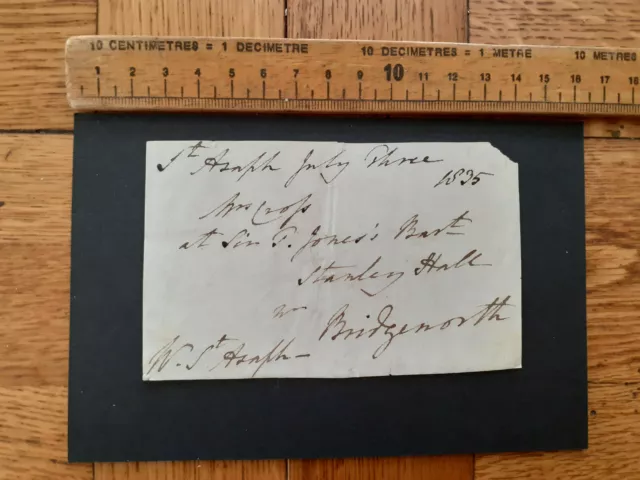 10 CENTIMETRES = 1 DECIMETRE 10 DECIMETRES = 1 METRE 10 METRES
1 2 3 4 5 6 7 8 9 10 11 12 13 14 15 16 17 18
St Asaph July Three
1835
Mrs Cross
at Sir T. Jones's Bart
Stanley Hall
nr Bridgenorth
W. St Asaph –